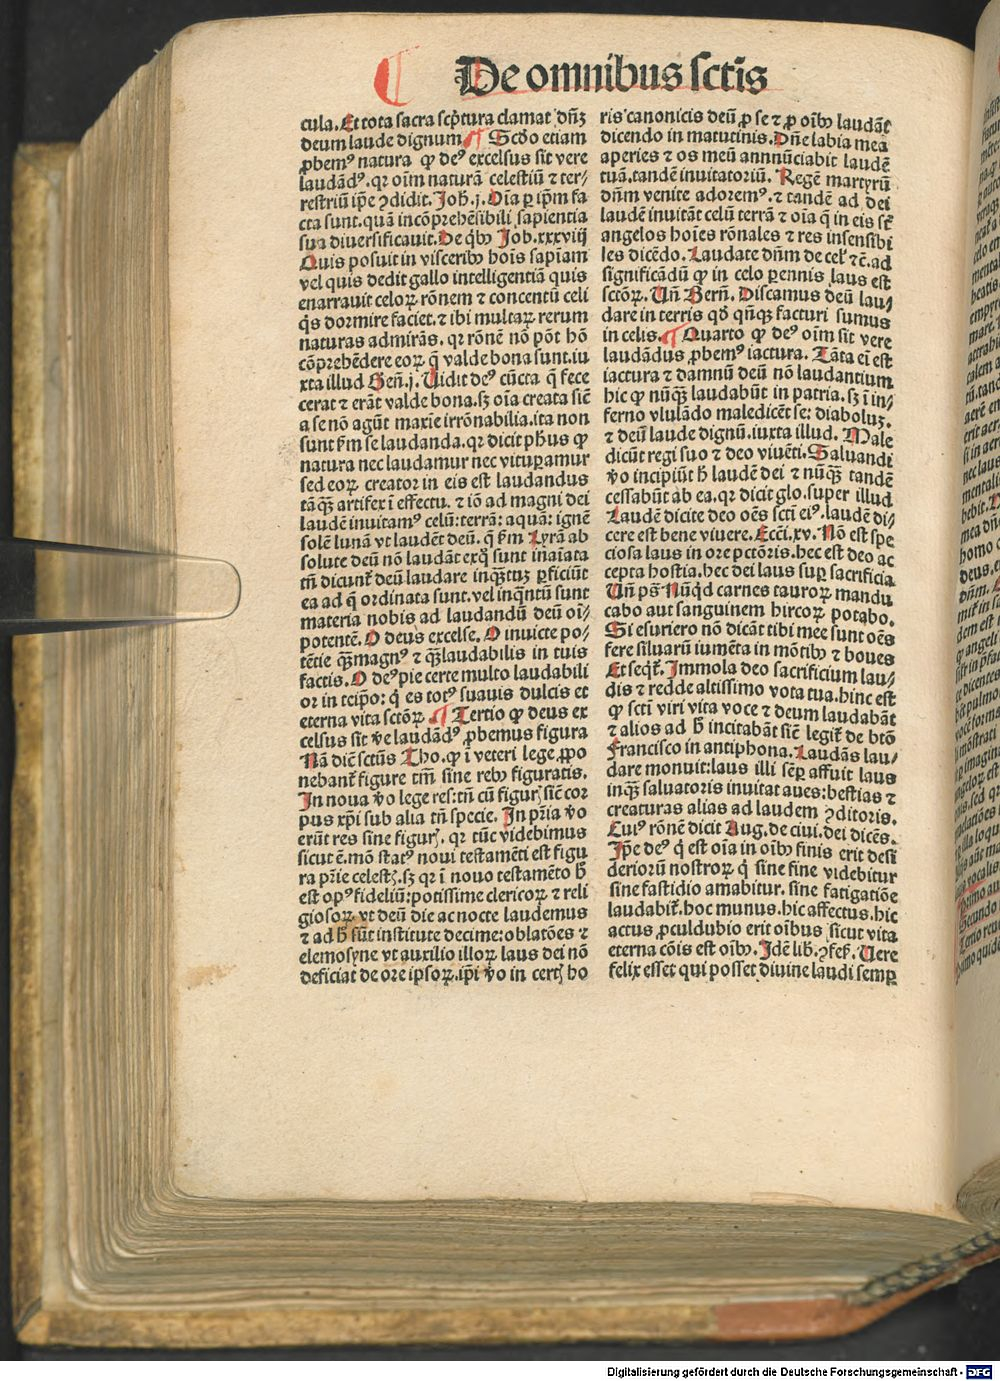 De omnibus sctis
cula. Et tota sacra scptura clamat dn̄ꝫ
deum laude dignum ¶ Scd̓o etiam
ꝓbemꝰ natura ꝙ deꝰ excelsus sit vere
laudādꝰ. qꝛ oīm naturā celestiū ⁊ ter⸗
restriū ip̄e ꝯdidit. Joh̄. j. Oīa ꝑ ip̄m fa
cta sunt. quā incōprehēsibili sapientia
sua diuersificauit. De qͥbꝰ Job. xxxviij
Quis posuit in visceribꝰ hoīs sapiam
vel quis dedit gallo intelligentiā quis
enarrauit celoꝝ rōnem ⁊ concentū celi
qͥs dormire faciet. ⁊ ibi multaꝝ rerum
naturas admirās. qꝛ rōnē nō pōt hō
cōprehēdere eoꝝ q̄ valde bona sunt. iu
xta illud Gen̄. j. Uidit deꝰ cūcta q̄ fece
cerat ⁊ erāt valde bona. sꝫ oīa creata sic̄
a se nō agūt maxīe irrōnabilia. ita non
sunt k̄m se laudanda. qꝛ dicit ph̄us ꝙ
natura nec laudamur nec vituꝑamur
sed eoꝝ creator in eis est laudandus
tāqꝫ artifex ī effectu. ⁊ iō ad magni dei
laudē inuitamꝰ celū: terrā: aquā: ignē
solē lunā vt laudēt deū. q̄ k̄m Lyrā ab
solute deū nō laudāt exqͦ sunt inaīata
tn̄ dicunt̄ deū laudare inqꝫtuꝫ ꝑficiūt
ea ad q̄ ordinata sunt. vel inqꝫtū sunt
materia nobis ad laudandū deū oī⸗
potentē. O deus excelse. O inuicte po⸗
tētie qꝫmagnꝰ ⁊ qꝫlaudabilis in tuis
factis. O deꝰ pie certe multo laudabili
or in teip̄o: qͥ es totꝰ suauis dulcis et
eterna vita sctōꝝ. ¶ Tertio ꝙ deus ex
celsus sit v̄e laudādꝰ ꝓbemus figura
Nā dic̄ sctūs Tho. ꝙ ī veteri lege ꝓpo
nebant̄ figure tm̄ sine rebꝰ figuratis.
In noua v̄o lege res: tn̄ cū figurꝭ sic̄ cor
pus xp̄i sub alia tn̄ specie. In pr̄ia v̄o
erūt res sine figurꝭ. qꝛ tūc videbimus
sicut ē. mō statꝰ noui testamēti est figu
ra pr̄ie celestꝭ. sꝫ qꝛ ī nouo testamēto h̄
est opꝰ fideliū: potissime clericoꝝ ⁊ reli
giosoꝝ vt deū die ac nocte laudemus
⁊ ad h̄ sūt institute decime: oblatōes ⁊
elemosyne vt auxilio illoꝝ laus dei nō
deficiat de ore ip̄soꝝ. ip̄i v̄o in certꝭ ho
ris canonicis deū ꝓ se ⁊ ꝓ oībꝰ laudāt
dicendo in matutinis. Dn̄e labia mea
aperies ⁊ os meū annnūciabit laudē
tuā. tandē inuitatoriū. Regē martyrū
dn̄m venite adoremꝰ. ⁊ tandē ad dei
laudē inuitāt celū terrā ⁊ oīa q̄ in eis st̄
angelos hoīes rōnales ⁊ res insensibi
les dicēdo. Laudate dn̄m de cel̓ ⁊c̄. ad
significādū ꝙ in celo ꝑennis laus est
sctōꝝ. Un̄ Bern̄. Discamus deū lau⸗
dare in terris qd̓ qn̄qꝫ facturi sumus
in celis. ¶ Quarto ꝙ deꝰ oīm sit vere
laudādus ꝓbemꝰ iactura. Tāta ei est
iactura ⁊ damnū deū nō laudantium
hic ꝙ nūqꝫ laudabūt in patria. sꝫ ī in⸗
ferno vlulādo maledicēt se: diaboluꝫ.
⁊ deū laude dignū. iuxta illud. Male
dicūt regi suo ⁊ deo viuēti. Saluandi
v̄o incipiūt h̄ laudē dei ⁊ nūqꝫ tandē
cessabūt ab ea. qꝛ dicit glo. super illud
Laudē dicite deo oēs sctī eiꝰ. laudē di⸗
cere est bene viuere. Ecc̄i. xv. Nō est spe
ciosa laus in ore pctōris. hec est deo ac
cepta hostia. hec dei laus suꝑ sacrificia
Un̄ ps̄ Nūqd carnes tauroꝝ mandu
cabo aut sanguinem hircoꝝ potabo.
Si esuriero nō dicāt tibi mee sunt oēs
fere siluarū iumēta in mōtibꝰ ⁊ boues
Et seqt̄. Immola deo sacrificium lau⸗
dis ⁊ redde altissimo vota tua. hinc est
ꝙ sctī viri vita voce ⁊ deum laudabāt
⁊ alios ad h̄ incitabāt sic̄ legit̄ de bt̄o
Francisco in antiphona. Laudās lau⸗
dare monuit: laus illi sēꝑ affuit laus
inqꝫ saluatoris inuitat aues: bestias ⁊
creaturas alias ad laudem ꝯditoris.
Cuiꝰ rōnē dicit Aug. de ciui. dei dicēs.
Ip̄e deꝰ qͥ est oīa in oībꝰ finis erit desi
deriorū nostroꝝ qͥ sine fine videbitur
sine fastidio amabitur. sine fatigatiōe
laudabit̄. hoc munus. hic affectus. hic
actus ꝓculdubio erit oībus sicut vita
eterna cōis est oībꝰ. Idē lib. ꝯfes̄. Uere
felix esset qui posset diuine laudi semꝑ
Digitalisierung gefördert durch die Deutsche Forschungsgemeinschaft - DFG